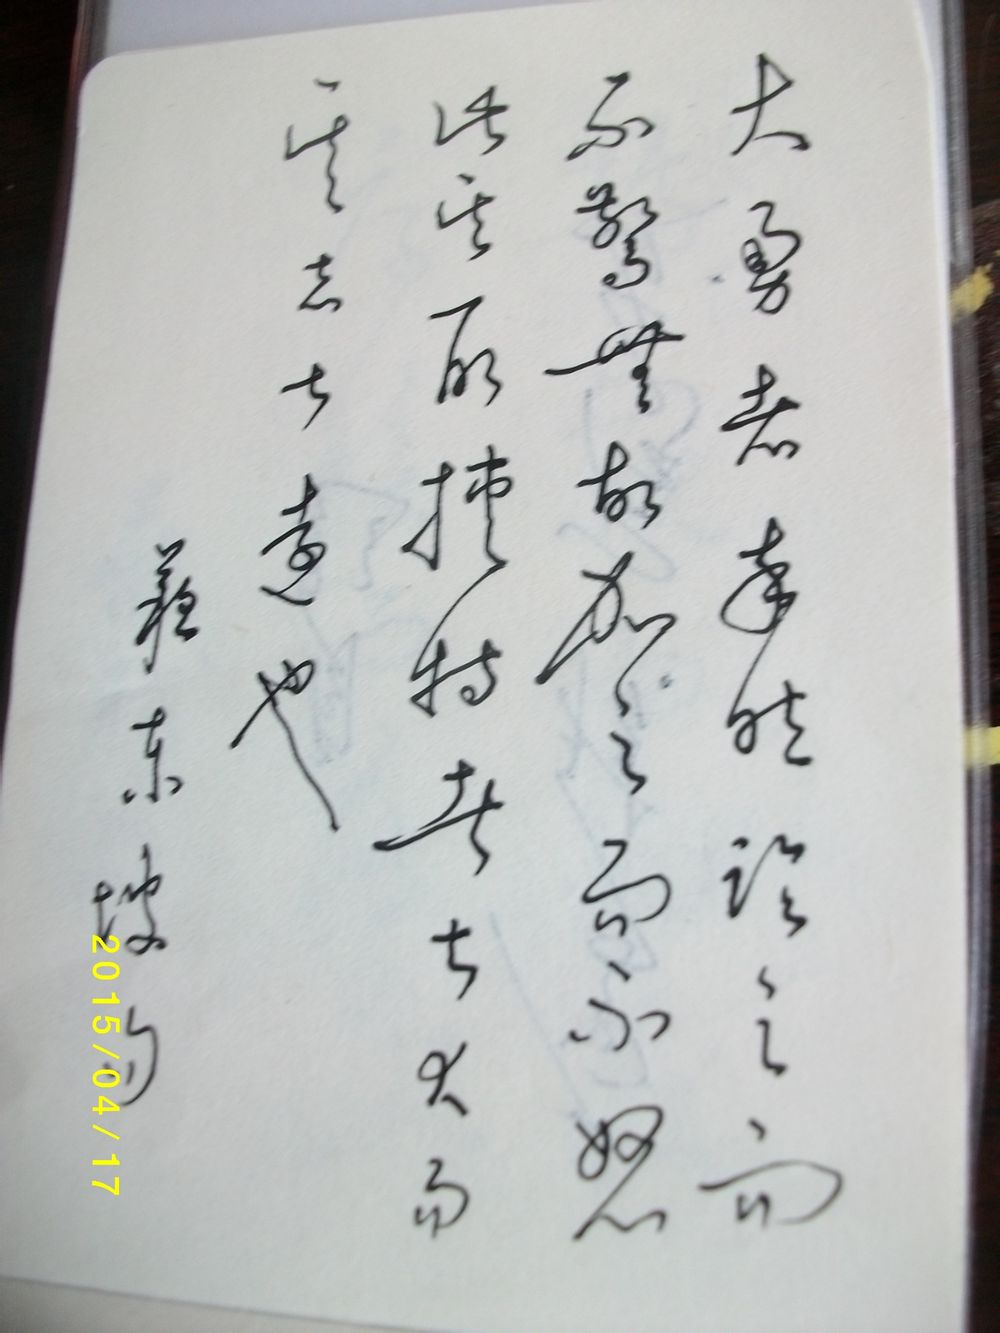 大勇者卒然临之而
不惊无故加之而不怒
此其所挟持者甚大而
其志甚远也
苏东坡句
2015/04/17